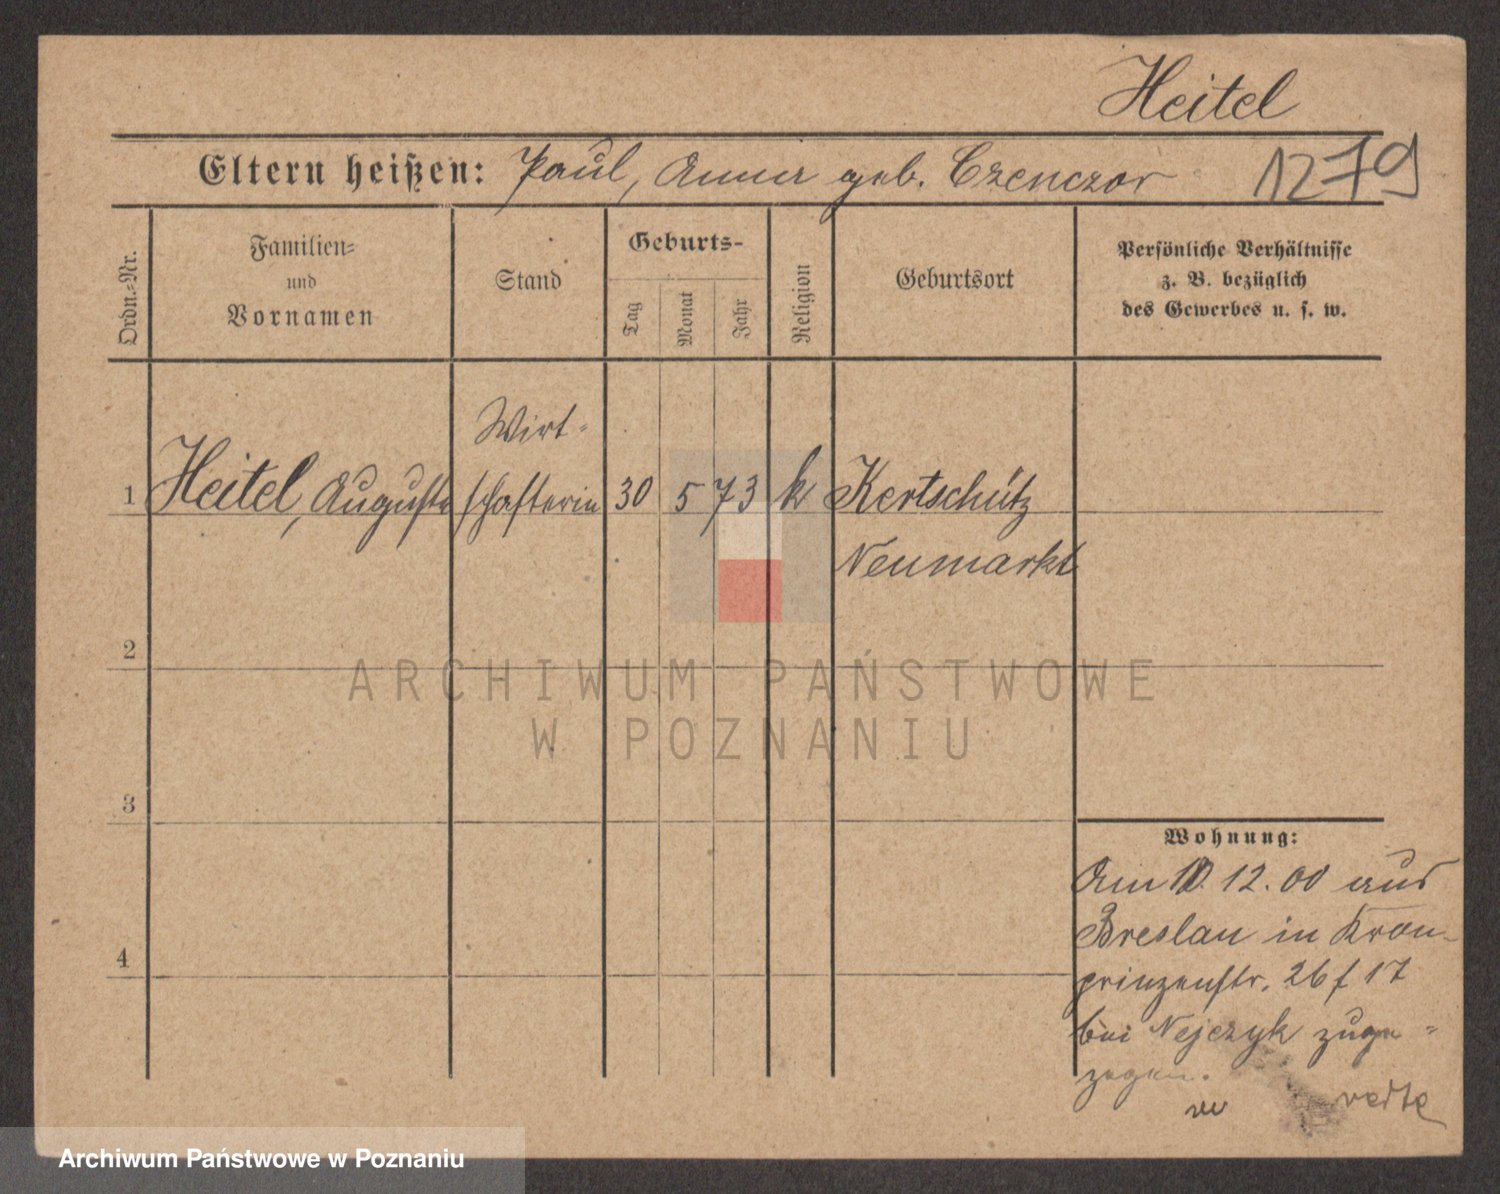 Heitel
Eltern heißen: Paul, Anna geb. Czenczor 1279
Ordn.-Nr.
Familien-
und
Vornamen
Stand
Geburts-
Tag
Monat
Jahr
Religion
Geburtsort
Persönliche Verhältnisse
z. B. bezüglich
des Gewerbes u. s. w.
Wirt-
1 Heitel, Auguste schafterin 30 5 73 k Kertschütz
Neumarkt
2
ARCHIWUM PAŃSTWOWE
W POZNANIU
3
Wohnung:
Am 10. 12. 00 aus
Breslau in Kron-
4
prinzenstr. 26 f 17
bei Nejczyk zuge-
zogen.
verte
Archiwum Państwowe w Poznaniu